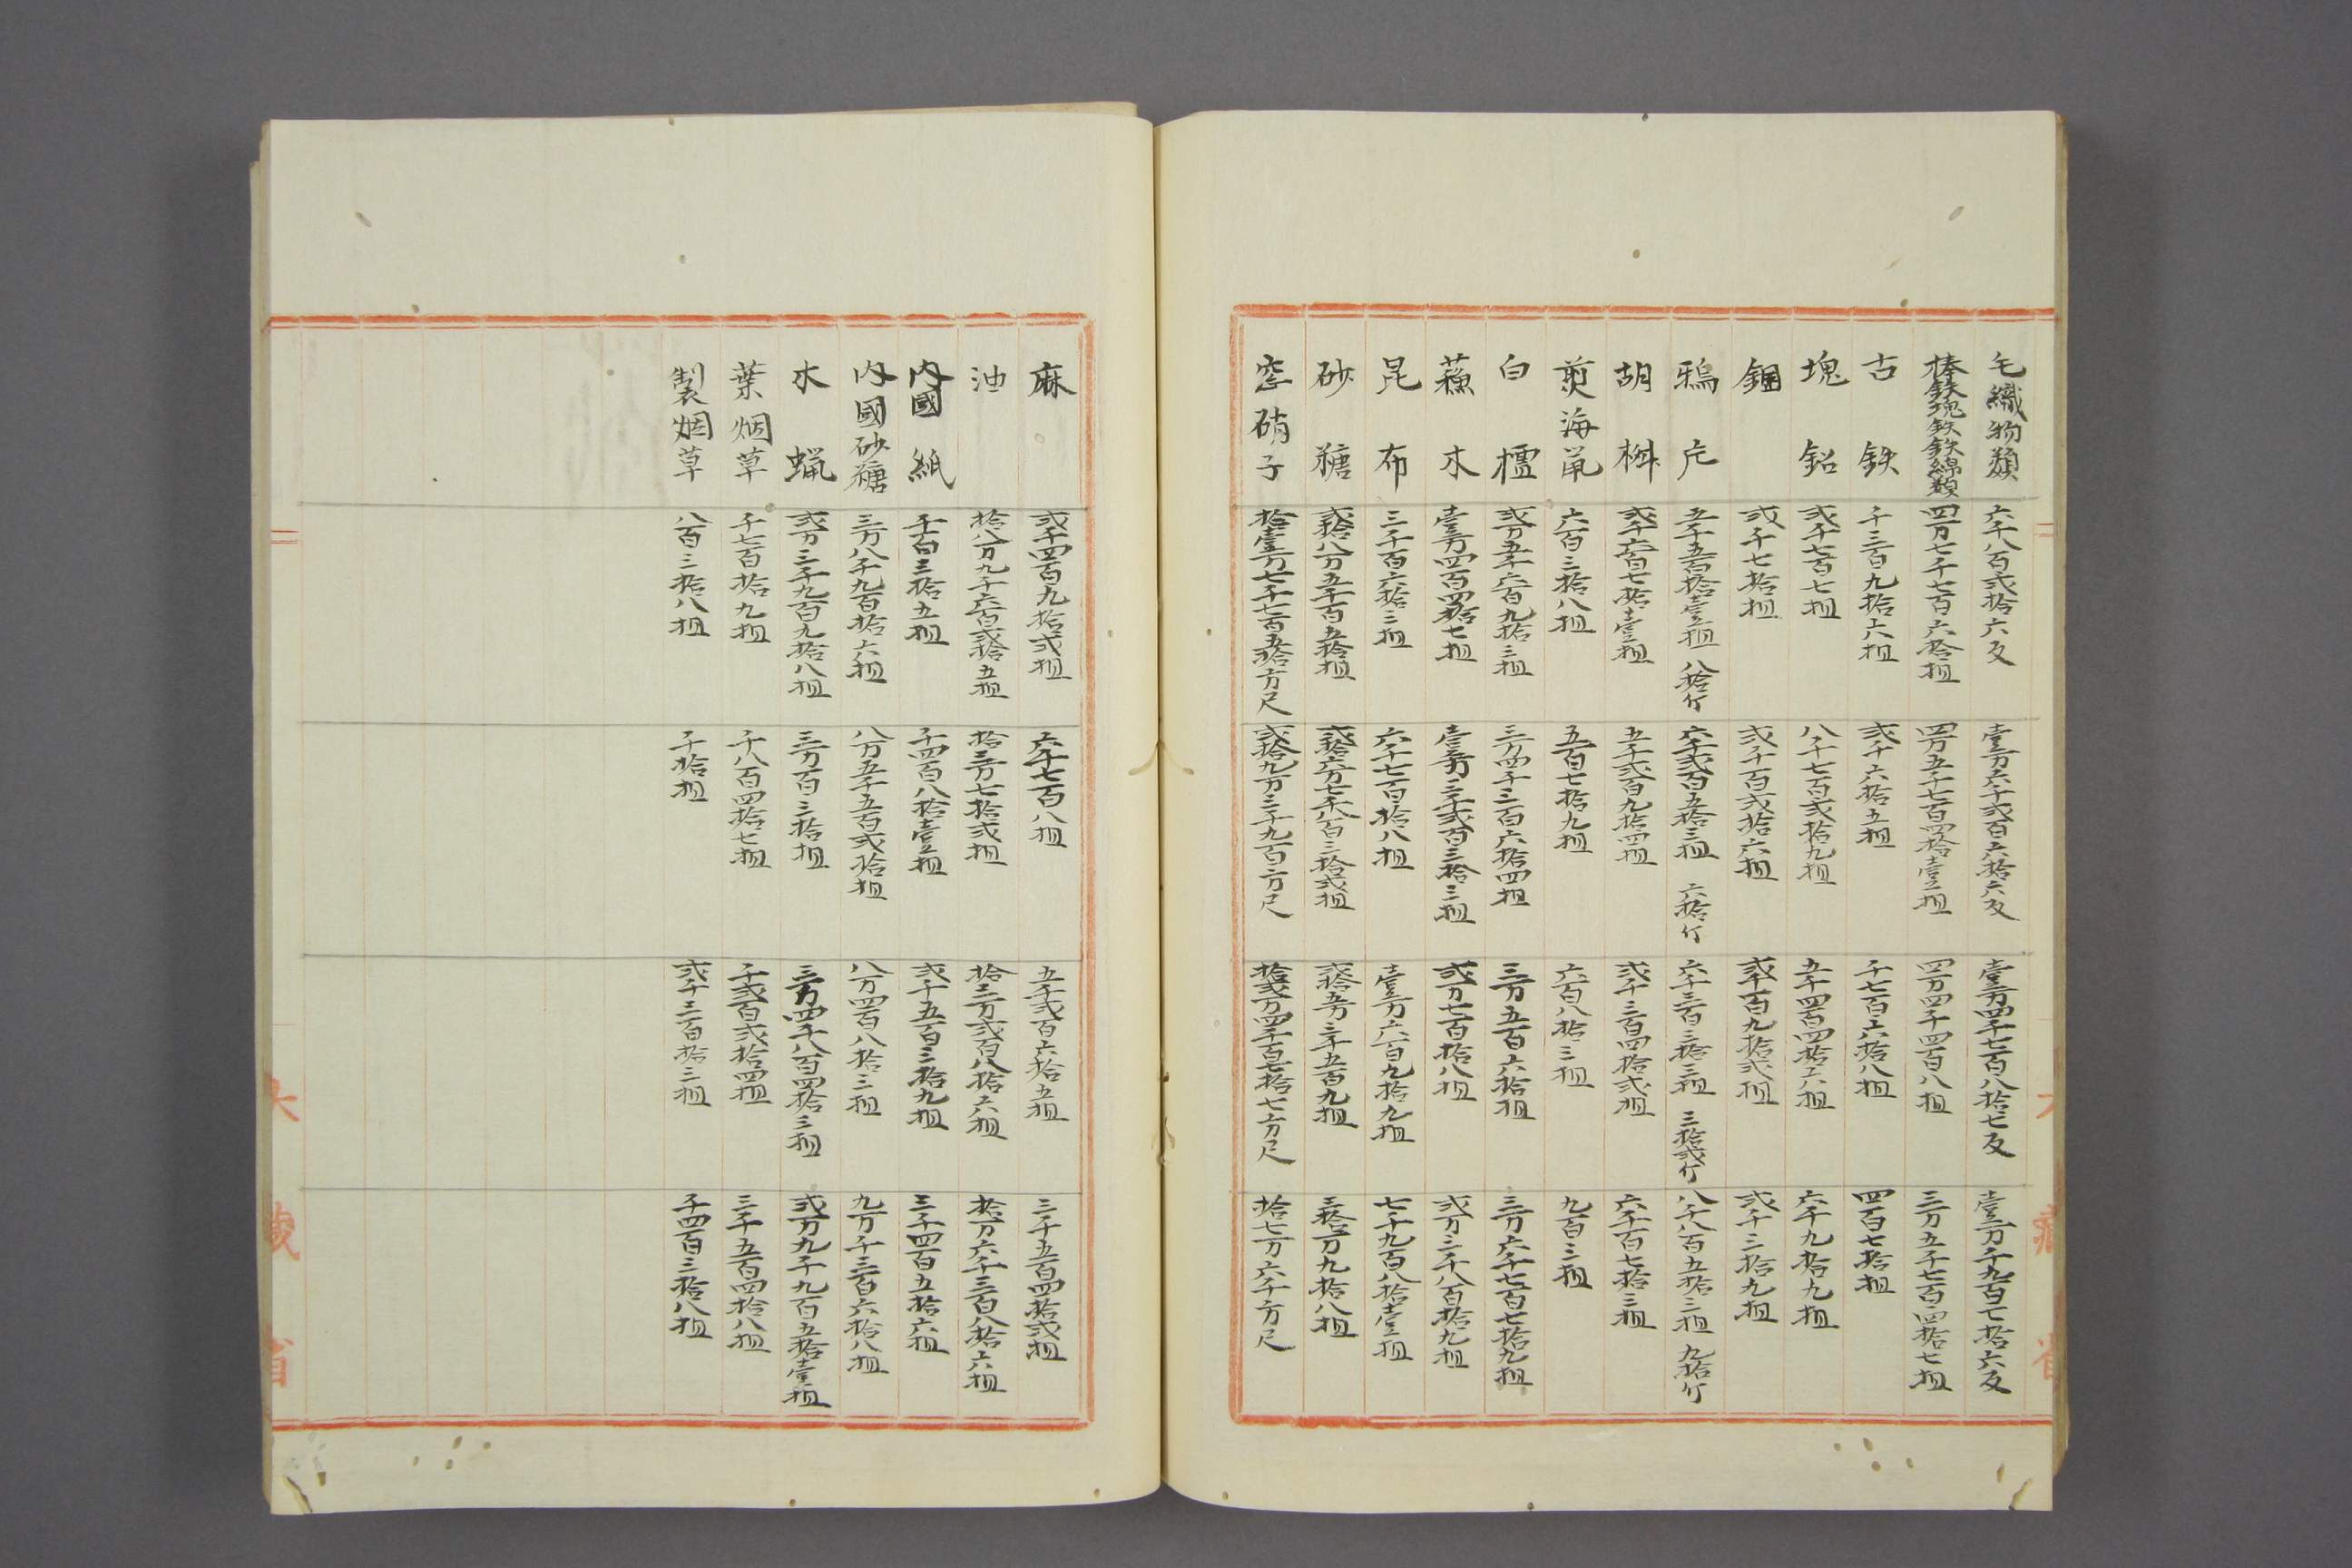 毛織物類 六千八百弐拾六反 壹万六千弐百六拾六反 壹万四千七百八拾七反 壹万千九百七拾六反
棒鉄塊鉄鉄線類 四万七千七百六拾担 四万五千七百四拾壹担 四万四千四百八担 三万五千七百四拾七担
古鉄 千三百九拾六担 弐千六拾五担 千七百六拾八担 四百七拾担
塊鉛 弐千七百七担 八千七百弐拾九担 五千四百四拾六担 六千九拾九担
鋼 弐千七拾担 弐千百弐拾六担 弐千百九拾弐担 弐千三拾九担
鴉片 五千五百拾壹担 八拾斤 六千弐百五拾三担 六拾斤 六千三百三拾三担 三拾弐斤 八千八百五拾三担 九拾斤
胡椒 弐千六百七拾壹担 五千弐百九拾四担 弐千三百四拾弐担 六千百七拾三担
煎海鼠 六百三拾八担 五百七拾九担 六百八拾三担 九百三担
白檀 弐万五千六百九拾三担 三万四千三百六拾四担 三万五百六拾担 三万六千七百七拾九担
蘓木 壹万四百四拾七担 壹万三千弐百三拾三担 弐万七百拾八担 弐万三千八百拾九担
昆布 三千百六拾三担 六千七百拾八担 壹万六百九拾九担 七千九百八拾壹担
砂糖 弐拾八万五千百五拾担 弐拾六万七千八百三拾弐担 弐拾五万三千五百九担 三拾万九拾八担
窓硝子 拾壹万七千七百五拾方尺 弐拾九万三千九百方尺 拾弐万四千百七拾七方尺 拾七万六千方尺
麻 弐千四百九拾弐担 六千七百八担 五千弐百六拾五担 三千五百四拾弐担
油 拾八万九千六百弐拾五担 拾三万七拾弐担 拾三万弐百八拾六担 拾万六千三百八拾六担
内國紙 千百三拾五担 千四百八拾壹担 弐千五百三拾九担 三千四百五拾六担
内國砂糖 三万八千九百拾六担 八万五千五百弐拾担 八万四百八拾三担 九万千三百六拾八担
木蝋 弐万三千九百九拾八担 三万百三拾担 三万四千八百四拾三担 弐万九千九百五拾壹担
葉烟草 千七百拾九担 千八百四拾七担 千弐百弐拾四担 三千五百四拾八担
製烟草 八百三拾八担 千拾担 弐千三百拾三担 千四百三拾八担